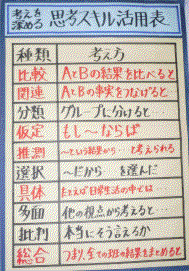 考えを
深める 思考スキル活用表
種類 考え方
比較 AとBの結果を比べると
関連 AとBの事実をつなげると
分類 グループに分けると
仮定 もし〜ならば
推測 〜という結果から… と考えられる
選択 〜だから を選んだ
具体 たとえば日常生活の中では
多面 他の視点から考えると…
批判 本当にそう言えるか
総合 つまり、全ての班の結果をまとめると